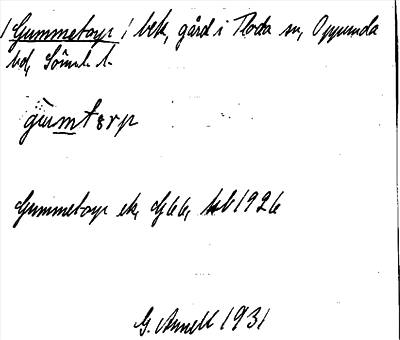 / Gummetorp / bek, gård i Floda sn, Oppunda
hd, Söml. l.
gumtorp
Gummetorp ek, G66, hbl 1926
G. Annell 1931